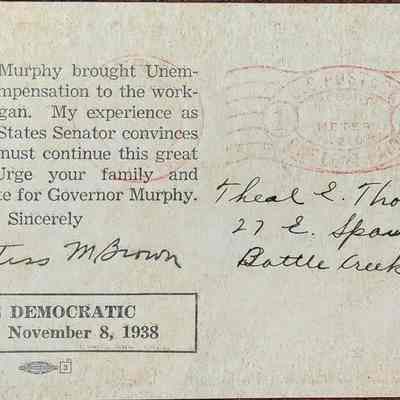 Murphy brought Unem-
mpensation to the work-
gan. My experience as
States Senator convinces
must continue this great
Urge your family and
te for Governor Murphy.
Sincerely
tiss M Brown
DEMOCRATIC
November 8, 1938
U.S. POSTAGE
METER
Theal E. Tho
27 E. Spau
Battle Creek